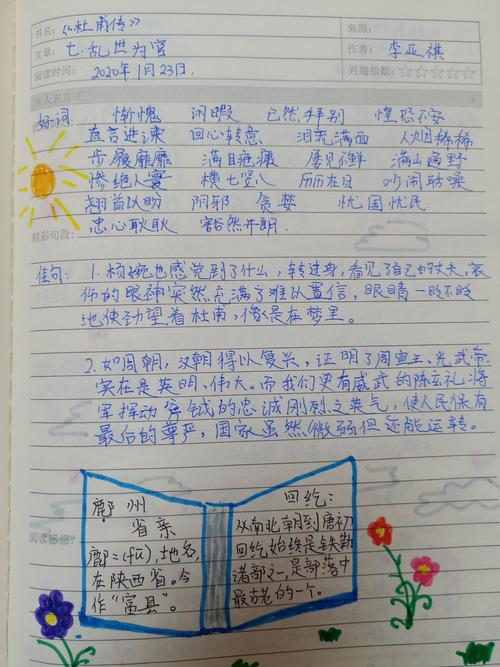 书名：《杜甫传》 来源：
文章：七.乱世为官 作者：李亚祺
阅读时间：2020年1月23日. 兴趣指数：☆☆☆☆☆
名人名言
好词 惭愧 闲暇 已然拜别 惶恐不安
直言进谏 回心转意 泪流满面 人烟稀稀
步履靡靡 满目疮痍 屡见不鲜 满山遍野
惨绝人寰 横七竖八 历历在目 吵闹聒噪
翘首以盼 阴郁 贪婪 忧国忧民
忠心耿耿 豁然开朗.
精彩句段：
佳句：1.杨婉也感觉到了什么，转过身，看见了自己的丈夫.哀
伤的眼神突然充满了难以置信，眼睛一眨不眨
地使劲望着杜甫，像是在梦里。
2.如周朝，汉朝得以复兴，证明了周宣王、光武帝
实在是英明、伟大。而我们更有威武的陈玄礼将
军挥动斧钺的忠诚刚烈之英气，使人民保有
最后的尊严，国家虽然微弱但还能运转。
阅读感想：
鄜州
省亲
鄜=(fū)，地名，
在陕西省。今
作“富县”。
回纥：
从南北朝到唐初
回纥始终是铁勒
诸部之一，是部落中
最古老的一个。